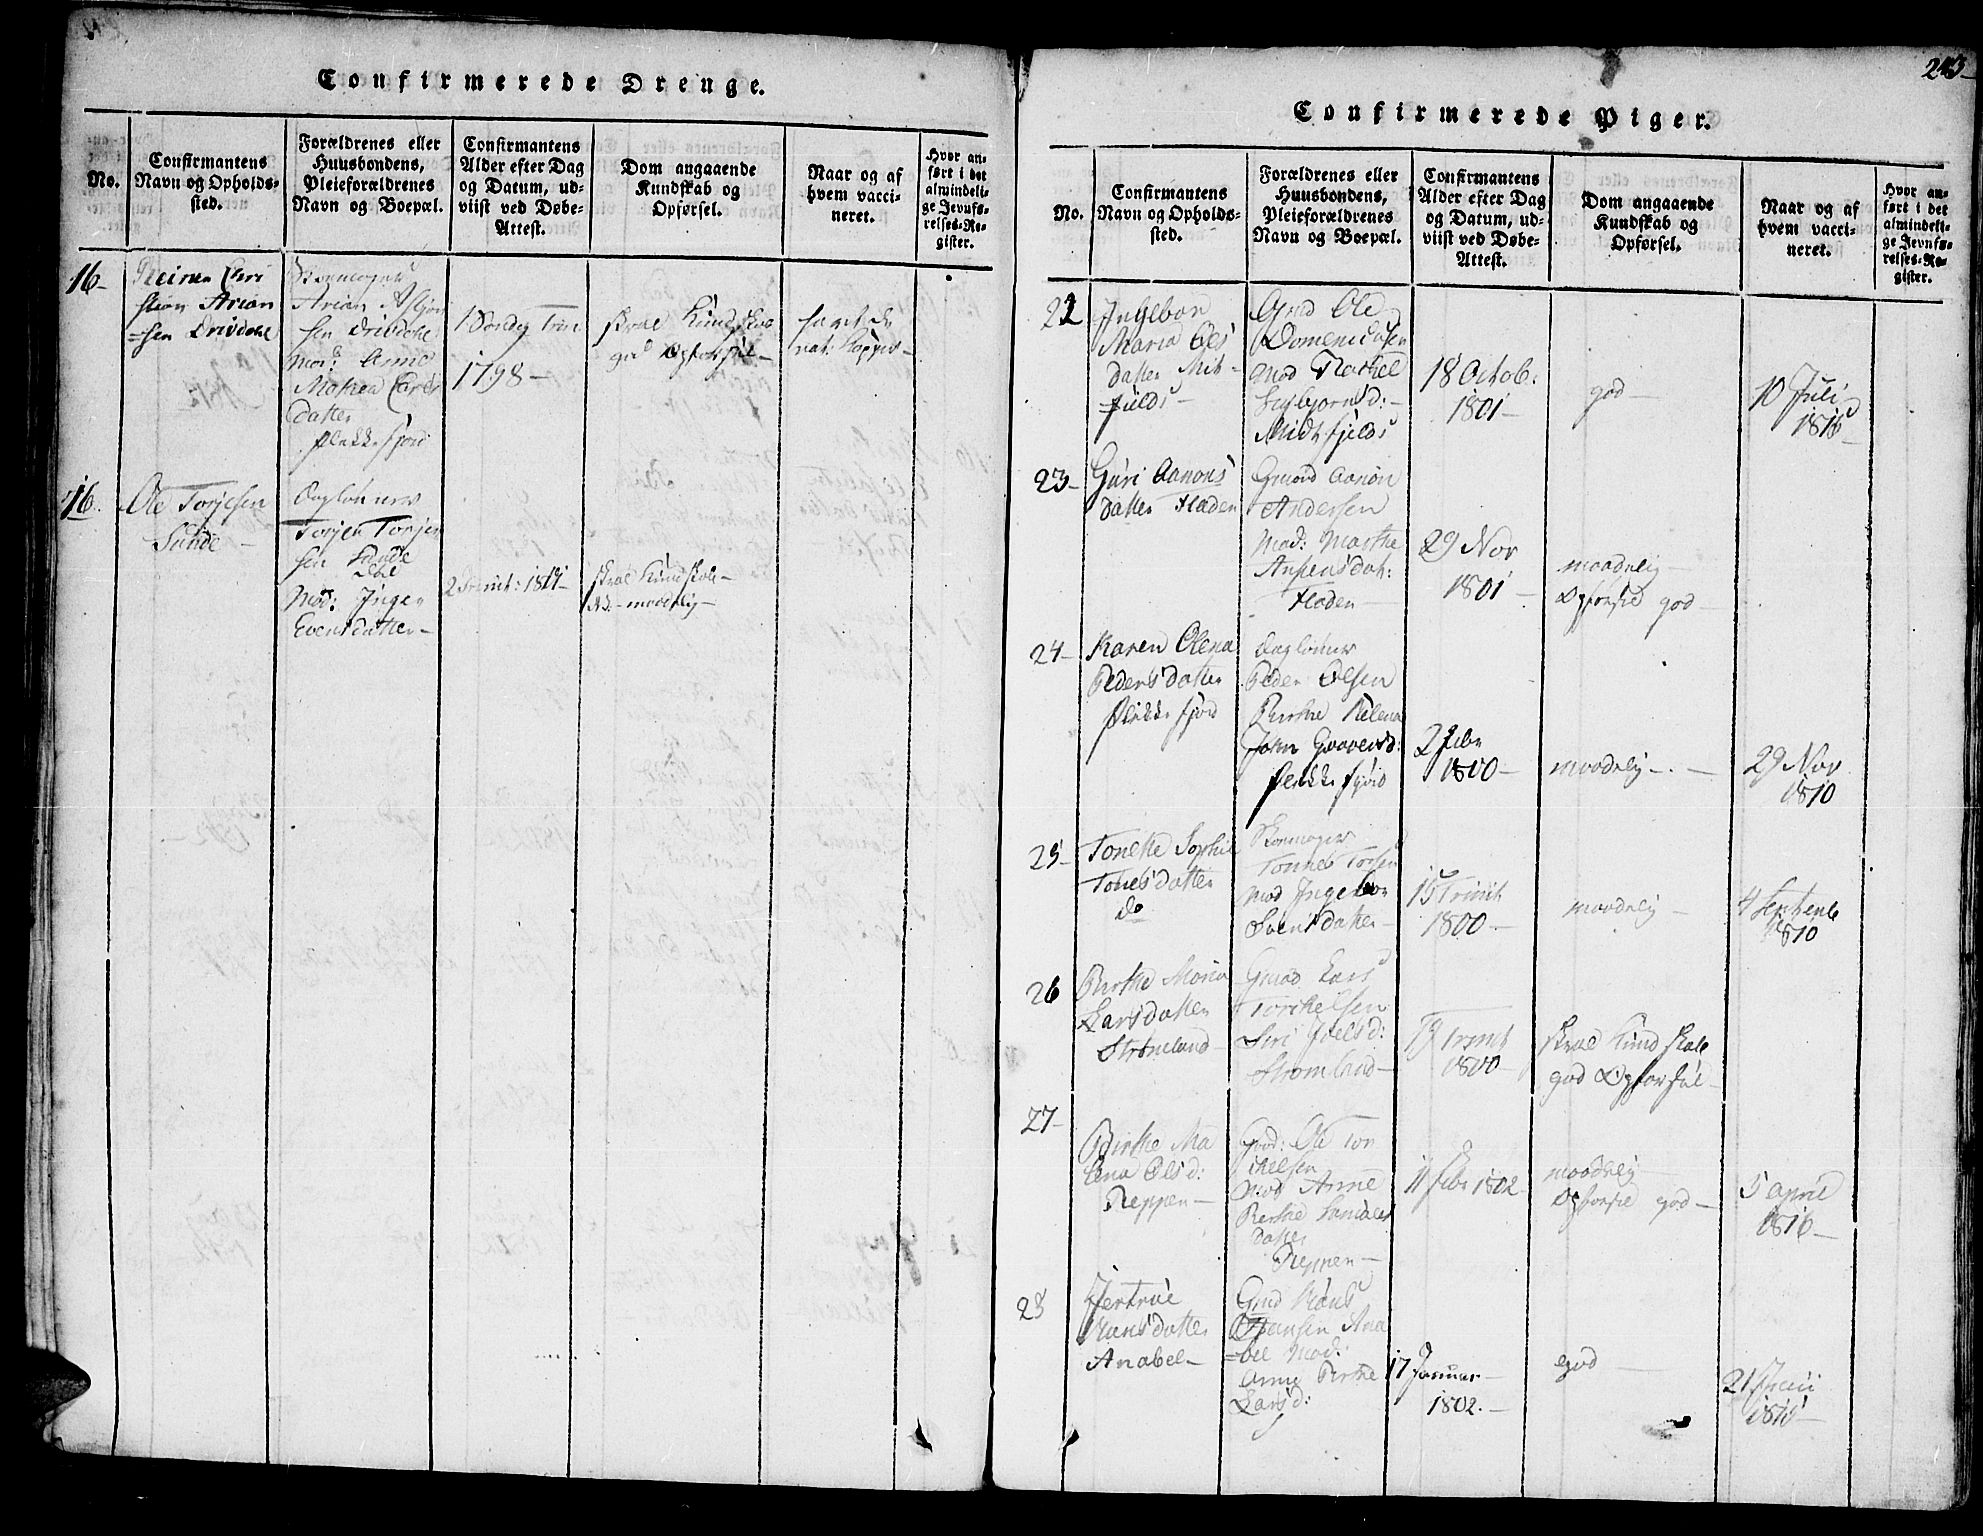 Confirmerede Drenge.
No.
Confirmantens
Navn og Opholds-
sted.
Forældrenes eller
Huusbondens,
Pleieforældrenes
Navn og Boepæl.
Confirmantens
Alder efter Dag
og Datum, ud-
viist ved Døbe-
Attest.
Dom angaaende
Kundskab og
Opførsel.
Naar og af
hvem vacci-
neret.
Hvor an-
ført i det
almindeli-
ge Jevnfø-
relses-Re-
gister.
16-
Chri
stian Arian
=sen Drivdahl
Skomager
Arian
sen Drivdahl
Mod: Anne
datter
Flekkefjord
1 Sondg Trin
1798-
skral Kundskab
god Opførsel-
nat: Kopper-
16.
Ole Torjesen
Sunde-
Dagløner
Torjen Torjen
sen Sunde
Mod: Inger
Evensdatter-
skral Kundskab-
moadelig-
243-
Confirmerede Piger.
No.
Confirmantens
Navn og Opholds-
sted.
Forældrenes eller
Huusbondens,
Pleieforældrenes
Navn og Boepæl.
Confirmantens
Alder efter Dag
og Datum, ud-
viist ved Døbe-
Attest.
Dom angaaende
Kundskab og
Opførsel.
Naar og af
hvem vacci-
neret.
Hvor an-
ført i det
almindeli-
ge Jevnfø-
relses-Re-
gister.
22
Ingebor
Maria Ols
datter Mit-
fields-
Gmd Ole
Mod Rachel
Midtfjelds
18 Octob:
1801-
god-
10 Juli
1816-
23-
Guri Aanons
datter Fladen
Gmand Aanon
Andersen
Mod: Marthe
Fladen-
29 Nov
1801-
moadelig-
Opførsel god-
24-
Karen Olena
Pedersdatter
Flekkefjord
Dagløner
Peder Olsen
Birthe Helena
John
Flekkefjord
2 Febr
1800-
moadelig-.-
29 Nov
1810
25-
Tonethe Sophie
Tonesdatter
do
Skomager
Tonnes
Mod Ingebor
Svensdatter-
15 Trinit
1800-
moadelig-
4 Septemb
1810
26
Birthe Maria
Larsdatter
Strømland-
Gmad Lars
Torkelsen
Siri Joelsd:
Strømland-
19 Trinit
1800-
skral Kundskab
god Opførsel-
27-
Birthe Ma
lena Olsd:
Reppen-
Gmd: Ole Tor
kelsen
Mod Anne
Berthe
datter
Reppen-
11 Febr 1802-
moadelig
Opførsel god-
5 April
1816-
28
Jertrue
Hansdatter
Anabel-
Gmd Hans
Hansen Ana
=bel Mod:
Anne Birthe
Larsd:
17 Januar-
1802.-
god-
21 Juni